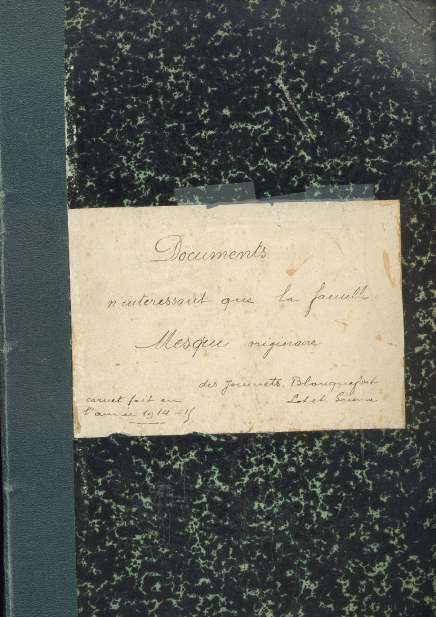 Documents
n'interessant que la famille
Mesqui originaire
des Jouinets. Blanquefort
carnet fait en Lot et Garonne
l'année 1914-15